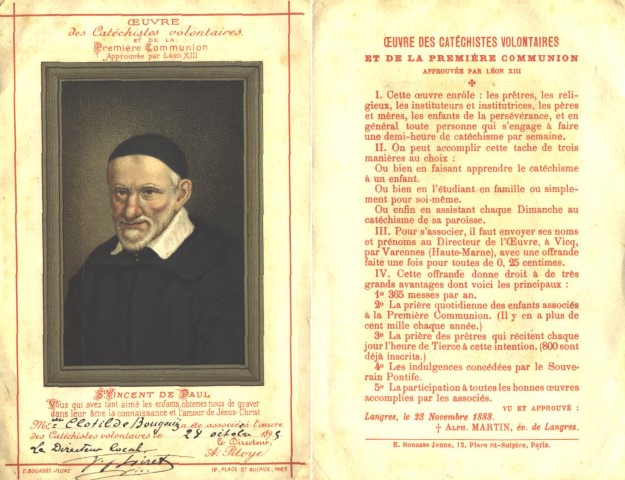 ŒUVRE
des Catéchistes volontaires
ET DE LA
Première Communion
Approuvée par Léon XIII
St VINCENT DE PAUL
Vous qui avez tant aimé les enfants, obtenez nous de graver
dans leur âme la connaissance et l'amour de Jésus-Christ
Clotilde a été associé à l'œuvre
des Catéchistes volontaires le 28 octobre 189
Le Directeur,
Le Directeur Local
A. Piloye
E. BOUASSE JEUNE
12, PLACE ST SULPICE, PARIS
ŒUVRE DES CATÉCHISTES VOLONTAIRES
ET DE LA PREMIÈRE COMMUNION
APPROUVÉE PAR LÉON XIII
I. Cette œuvre enrôle : les prêtres, les reli-
gieux, les instituteurs et institutrices, les pères
et mères, les enfants de la persévérance, et en
général toute personne qui s'engage à faire
une demi-heure de catéchisme par semaine.
II. On peut accomplir cette tache de trois
manières au choix :
Ou bien en faisant apprendre le catéchisme
à un enfant.
Ou bien en l'étudiant en famille ou simple-
ment pour soi-même.
Ou enfin en assistant chaque Dimanche au
catéchisme de sa paroisse.
III. Pour s'associer, il faut envoyer ses noms
et prénoms au Directeur de l'Œuvre, à Vicq,
par Varennes (Haute-Marne), avec une offrande
faite une fois pour toutes de 0, 25 centimes.
IV. Cette offrande donne droit à de très
grands avantages dont voici les principaux :
1º 365 messes par an.
2º La prière quotidienne des enfants associés
à la Première Communion. (Il y en a plus de
cent mille chaque année.)
3º La prière des prêtres qui récitent chaque
jour l'heure de Tierce à cette intention. (800 sont
déjà inscrits.)
4º Les indulgences concédées par le Souve-
rain Pontife.
5º La participation à toutes les bonnes œuvres
accomplies par les associés.
VU ET APPROUVÉ :
Langres, le 23 Novembre 1888.
† ALPH. MARTIN, év. de Langres.
E. Bouasse Jeune, 12, Place St-Sulpice, Paris.